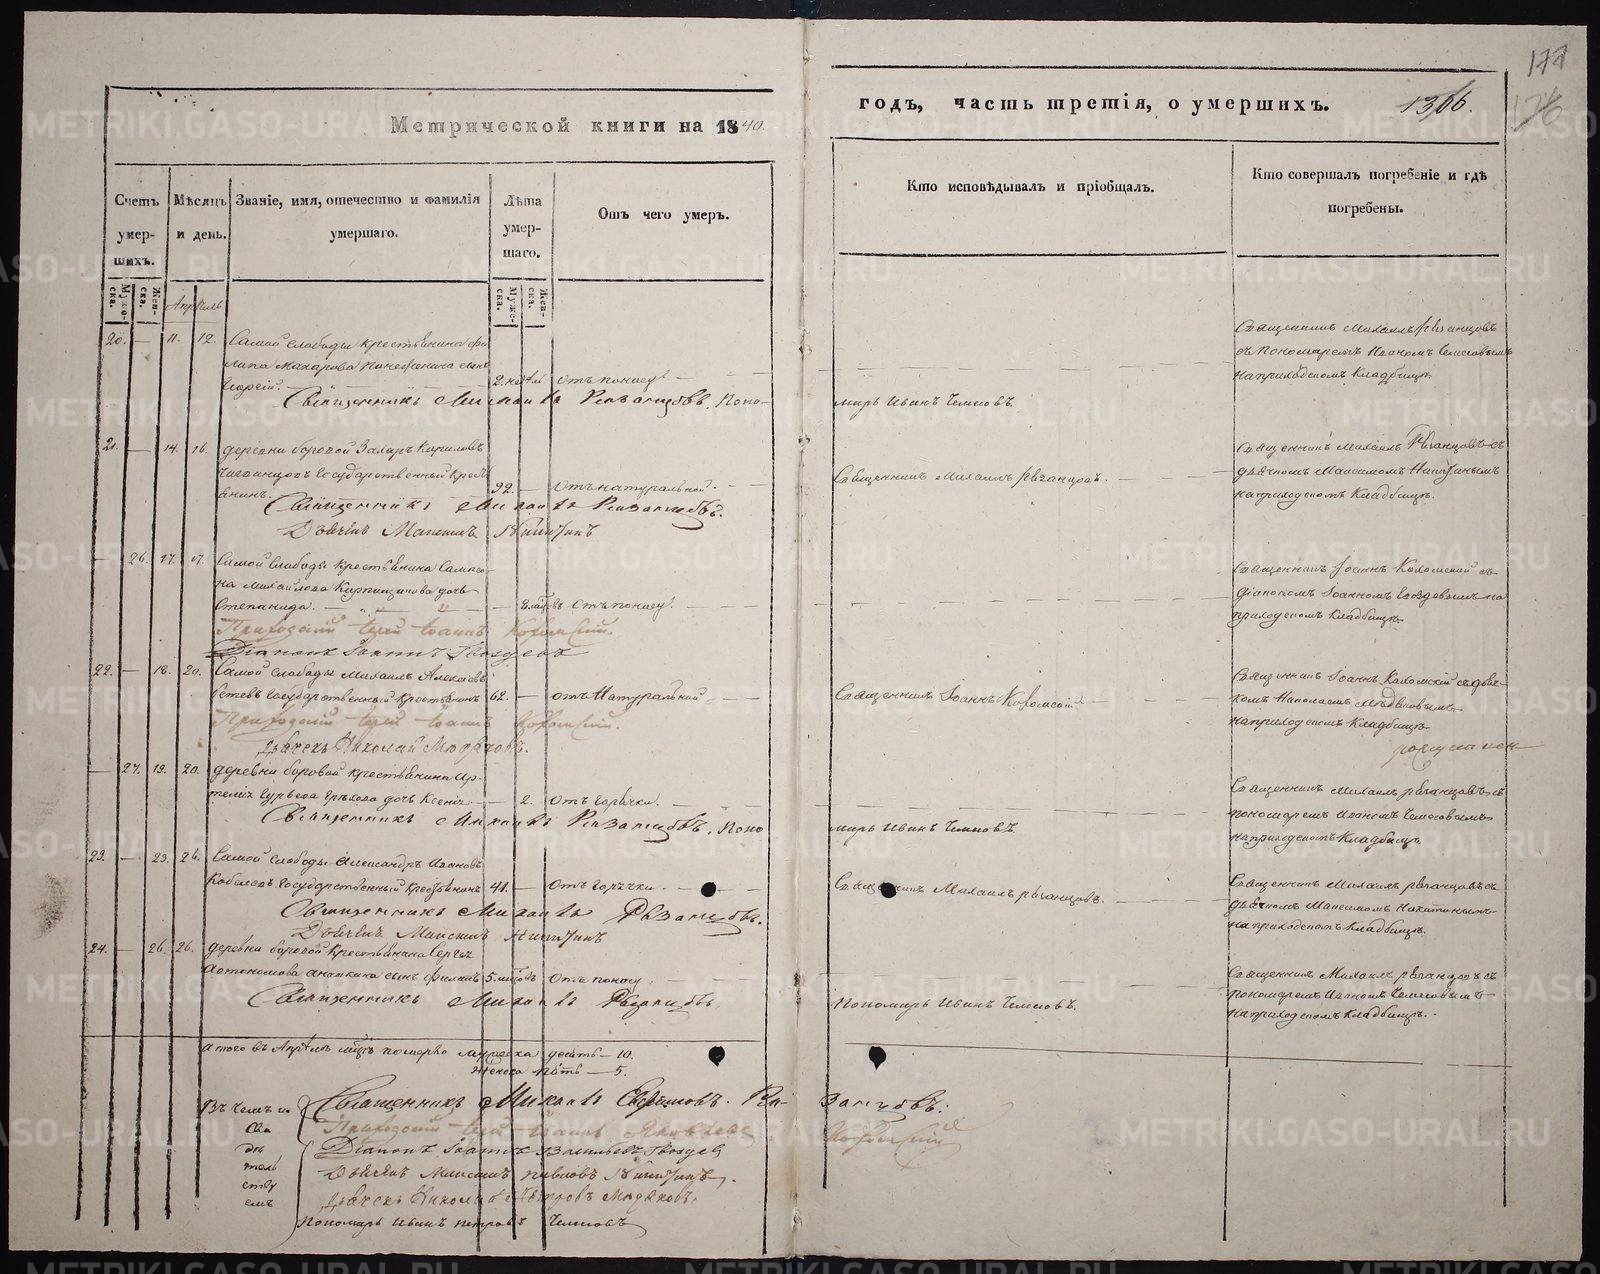 177
176
Метрической книги на 1840.
годъ, часть третія, о умершихъ.
1306.
Счетъ умер-шихъ.
Мѣсяцъ и день.
Званіе, имя, отечество и фамилія умершаго.
Лѣта умер-шаго.
Отъ чего умеръ.
Кто исповѣдывалъ и пріобщалъ.
Кто совершалъ погребеніе и гдѣ погребены.
Муже-ска.
Жен-ска.
Апрѣль
Муже-ска.
Жен-ска.
20. — 11. 12. Самой слободы крестьянина Фи
липа Макарова сынъ
Георгій. 2. недѣль отъ поносу
Священникъ Михаилъ Рязанцовъ. Поно-
марь Иванъ Чемесовъ
Священникъ Михаилъ Рязанцовъ
съ Пономаремъ Иваномъ Чемесовымъ
на приходскомъ Кладбищѣ
21. — 14. 16. деревни боровой Захаръ Кириловъ
Государственный Крест
янинъ. 92. — Отъ натуральной.
Священникъ Михаилъ Рязанцовъ.
Дьячекъ Максимъ Никитинъ
Священникъ Михаилъ Рязанцовъ.
Священникъ Михаилъ Рязанцовъ съ
дьячкомъ Максимомъ Никитинымъ
на приходскомъ Кладбищѣ.
— 26. 17. 19. Самой Слободы Крестьянина Сампсо-
на Михайлова Кирпищикова дочь
Степанида. 8 мцовъ отъ поносу
Приходскій Іерей Іоаннъ Кохомскій.
Діаконъ Іоаннъ Гвоздевъ
Священникъ Іоаннъ Кохомской съ
діакономъ Іоанномъ Гвоздевымъ на
приходскомъ Кладбищѣ
22. — 18. 20. Самой Слободы Михаилъ Алексѣевъ
Государственный Крестьянинъ 62. — отъ Натуральной
Приходскій Іерей Іоаннъ Кохомскій.
Дьячекъ Николай Мюдяковъ.
Священникъ Іоаннъ Кохомской
Священникъ Іоаннъ Кохомской съ дьяч-
комъ Николаемъ
на приходскомъ Кладбищѣ
— 27. 19. 20. деревни боровой крестьянина Ар-
темія Гурьева дочь Ксенія — 2. Отъ горячки.
Священникъ Михаилъ Рязанцовъ. Поно
марь Иванъ Чемесовъ
Священникъ Михаилъ Рязанцовъ съ
пономаремъ Иваномъ Чемесовымъ
на приходскомъ Кладбищѣ
23. — 23. 26. Самой слободы Александръ Ивановъ
Кобелевъ Государственный Крестьянинъ 41. — Отъ горячки.
Священникъ Михаилъ Рязанцовъ.
Дьячекъ Максимъ Никитинъ
Священникъ Михаилъ Рязанцовъ.
Священникъ Михаилъ Рязанцовъ съ
дьячкомъ Максимомъ Никитинымъ
на приходскомъ Кладбищѣ.
24. — 26. 26. деревни боровой Крестьянина Сергѣя
Автономова сынъ Филипъ 5. мцовъ Отъ поносу
Священникъ Михаилъ Рязанцовъ.
Пономарь Иванъ Чемесовъ.
Священникъ Михаилъ Рязанцовъ съ
пономаремъ Иваномъ Чемесовымъ
на приходскомъ Кладбищѣ.
а того въ Апрѣлѣ мцѣ померло мужеска десять — 10.
женска пять — 5.
Въ чемъ и
сви
дѣ
тель
ству
емъ
Священникъ Михаилъ Рязанцовъ.
Приходскій Іерей Іоаннъ Яковлевъ Кохомскій
Діаконъ Іоаннъ Васильевъ Гвоздевъ
Дьячекъ Максимъ Павловъ Никитинъ.
Дьячекъ Николай Петровъ Мюдяковъ.
Пономарь Иванъ Петровъ Чемесовъ
METRIKI.GASO-URAL.RU